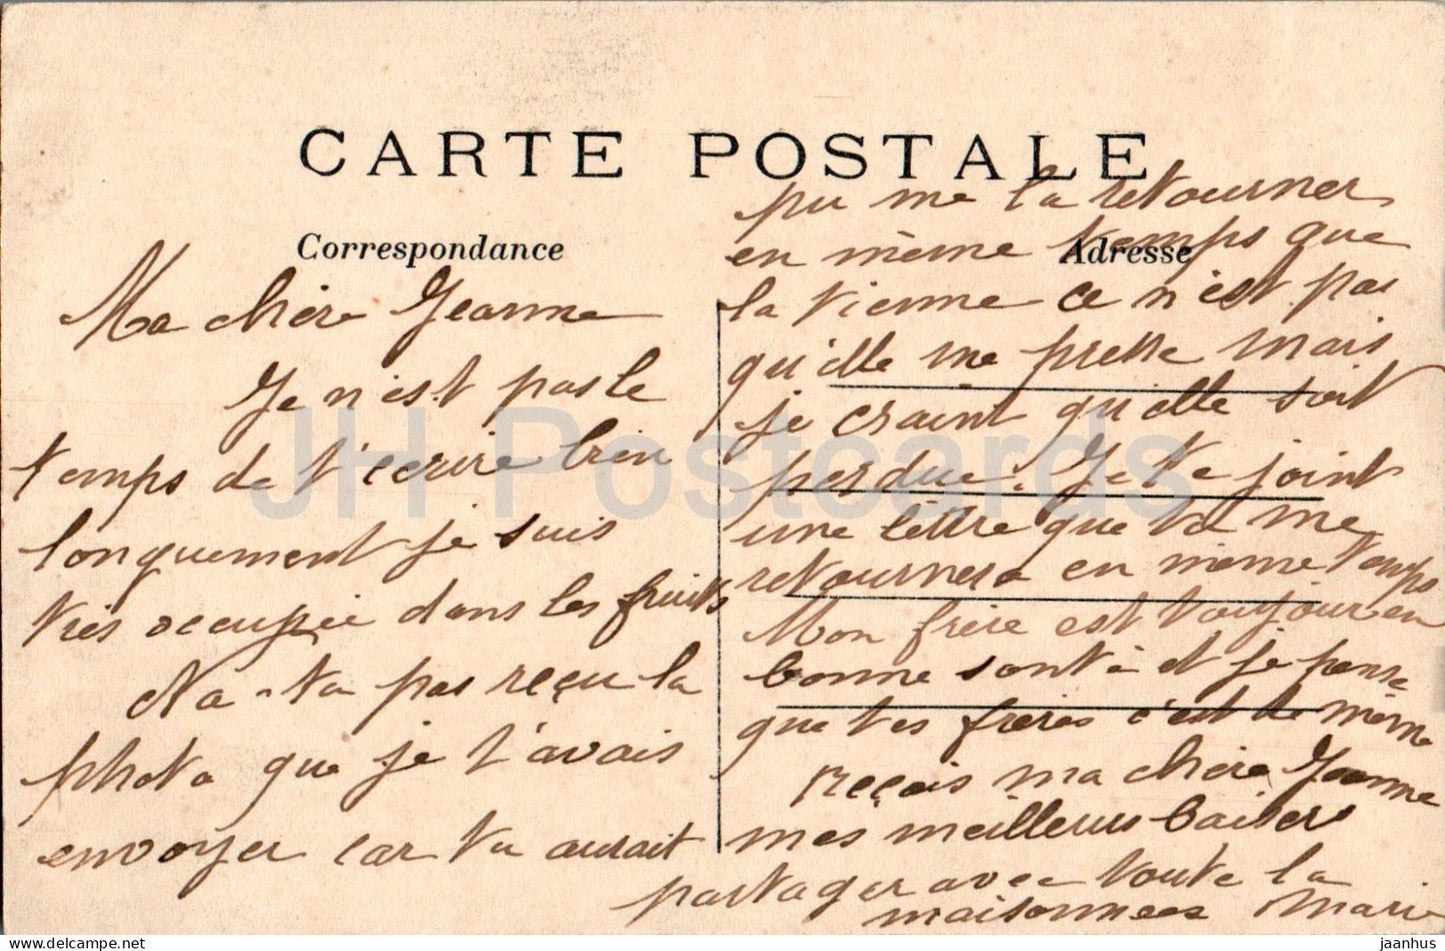 CARTE POSTALE
Correspondance
Ma chère Jeanne
Je n'est pas le
temps de t'ecrire bien
longuement je suis
très occupée dans les fruits
Na-ta pas reçu la
photo que je t'avais
envoyer car tu aurait
Adresse
pu me la retourner
en même temps que
la tienne ce n'est pas
qu'elle me presse mais
je craint qu'elle soit
perdue. Je te joint
une lettre que tu me
retournera en même temps
Mon frère est toujour en
bonne santé et je pense
que tes frères c'est de même
reçois ma chère Jeanne
mes meilleurs baisers
partager avec toute la
maisonnees Marie
JH Postcards
delcampe.net
jaanhus